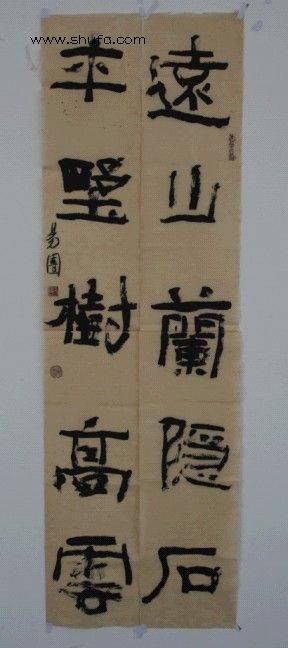 www.shufa.com
遠山蘭隐石
平墅樹高雲